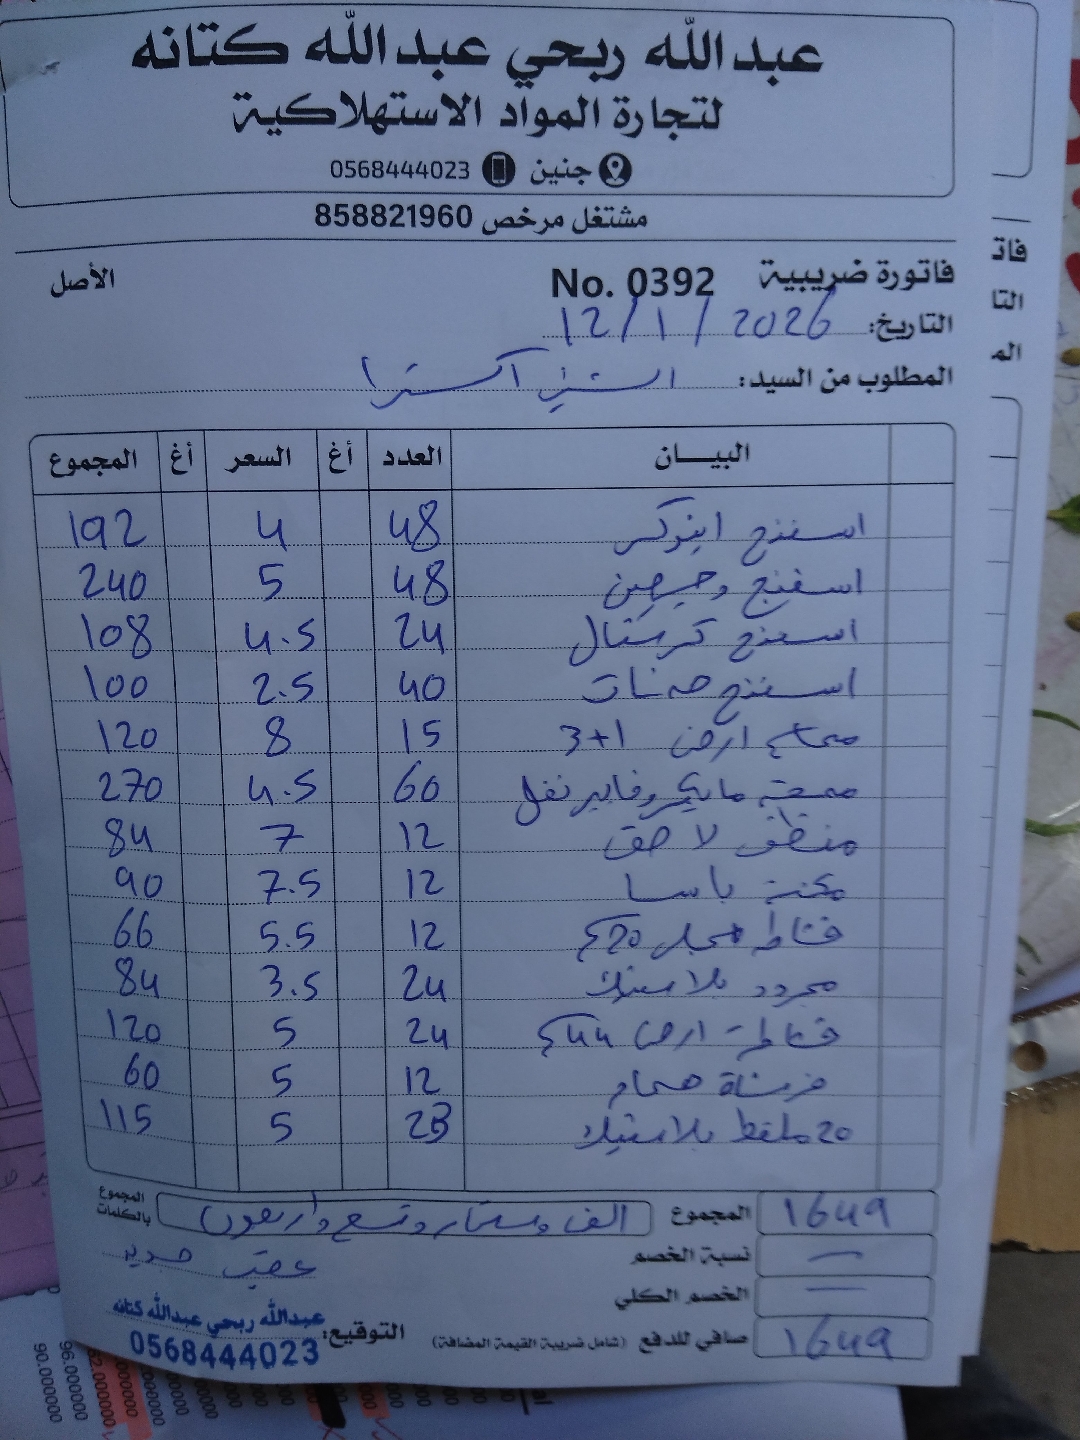 عبدالله ربحي عبدالله كتانه
لتجارة المواد الاستهلاكية
جنين 0568444023
مشتغل مرخص 858821960
فاتورة ضريبية No. 0392 الأصل
التاريخ: 12/1/2026
المطلوب من السيد: اكسترا
البيــان العدد أغ السعر أغ المجموع
اسفنج اينوكس 48 4 192
اسفنج وجهين 48 5 240
اسفنج كرستال 24 4.5 108
اسفنج 40 2.5 100
ارض 3+1 15 8 120
ممسحة مايكروفايبر نفل 60 4.5 270
منظف لاصق 12 7 84
مكنسة باسا 12 7.5 90
قشاطة مجلى 20 12 5.5 66
مجرود بلاستيك 24 3.5 84
قشاطة ارض 44 24 5 120
فرشاة حمام 12 5 60
20 ملقط بلاستيك 23 5 115
المجموع 1649
المجموع بالكلمات الف وستماية وتسع واربعون
نسبة الخصم —
الخصم الكلي —
صافي للدفع (شامل ضريبة القيمة المضافة) 1649
التوقيع: عبدالله ربحي عبدالله كتانه
0568444023
فات
التا
الم
90.000000
96.000000